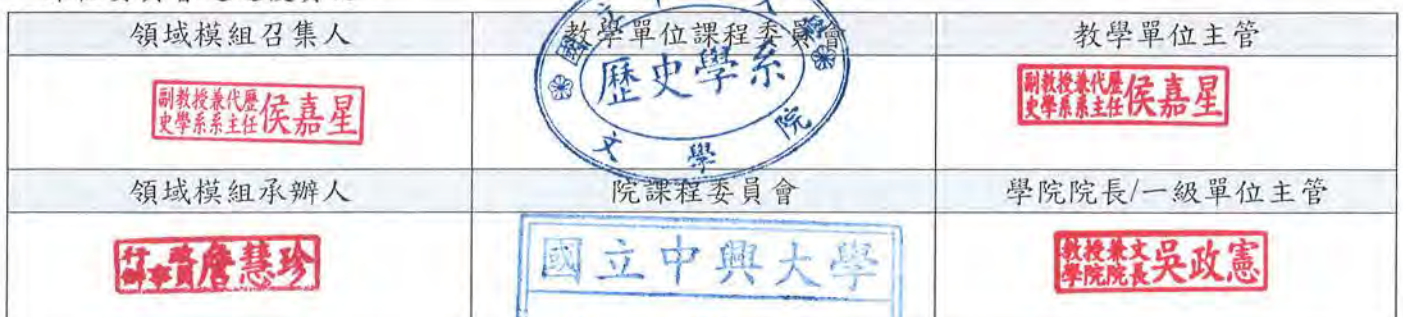 領域模組召集人
教學單位課程委員會
教學單位主管
副教授兼代歷
史學系系主任
侯嘉星
歷史學系
文學院
副教授兼代歷
史學系系主任
侯嘉星
領域模組承辦人
院課程委員會
學院院長/一級單位主管
詹慧珍
國立中興大學
教授兼文
學院院長
吳政憲